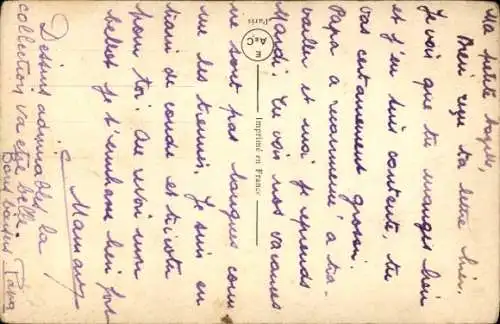 Ma petite
Bien reçu ta lettre hier.
Je vois que tu manges bien
et j'en suis contente, tu
vas certainement grossir.
Papa a recommencé à tra-
vailler et moi je reprends
Mardi. Tu vois nos vacances
ne sont pas longues com
me les tiennes. Je suis en
train de coudre et tricoter
pour toi. Au revoir mon
bébé et je t'embrasse bien fort
Maman
Dessins admirables, la
collection va être belle.
Bons baisers Papa
Imprimé en France
Paris